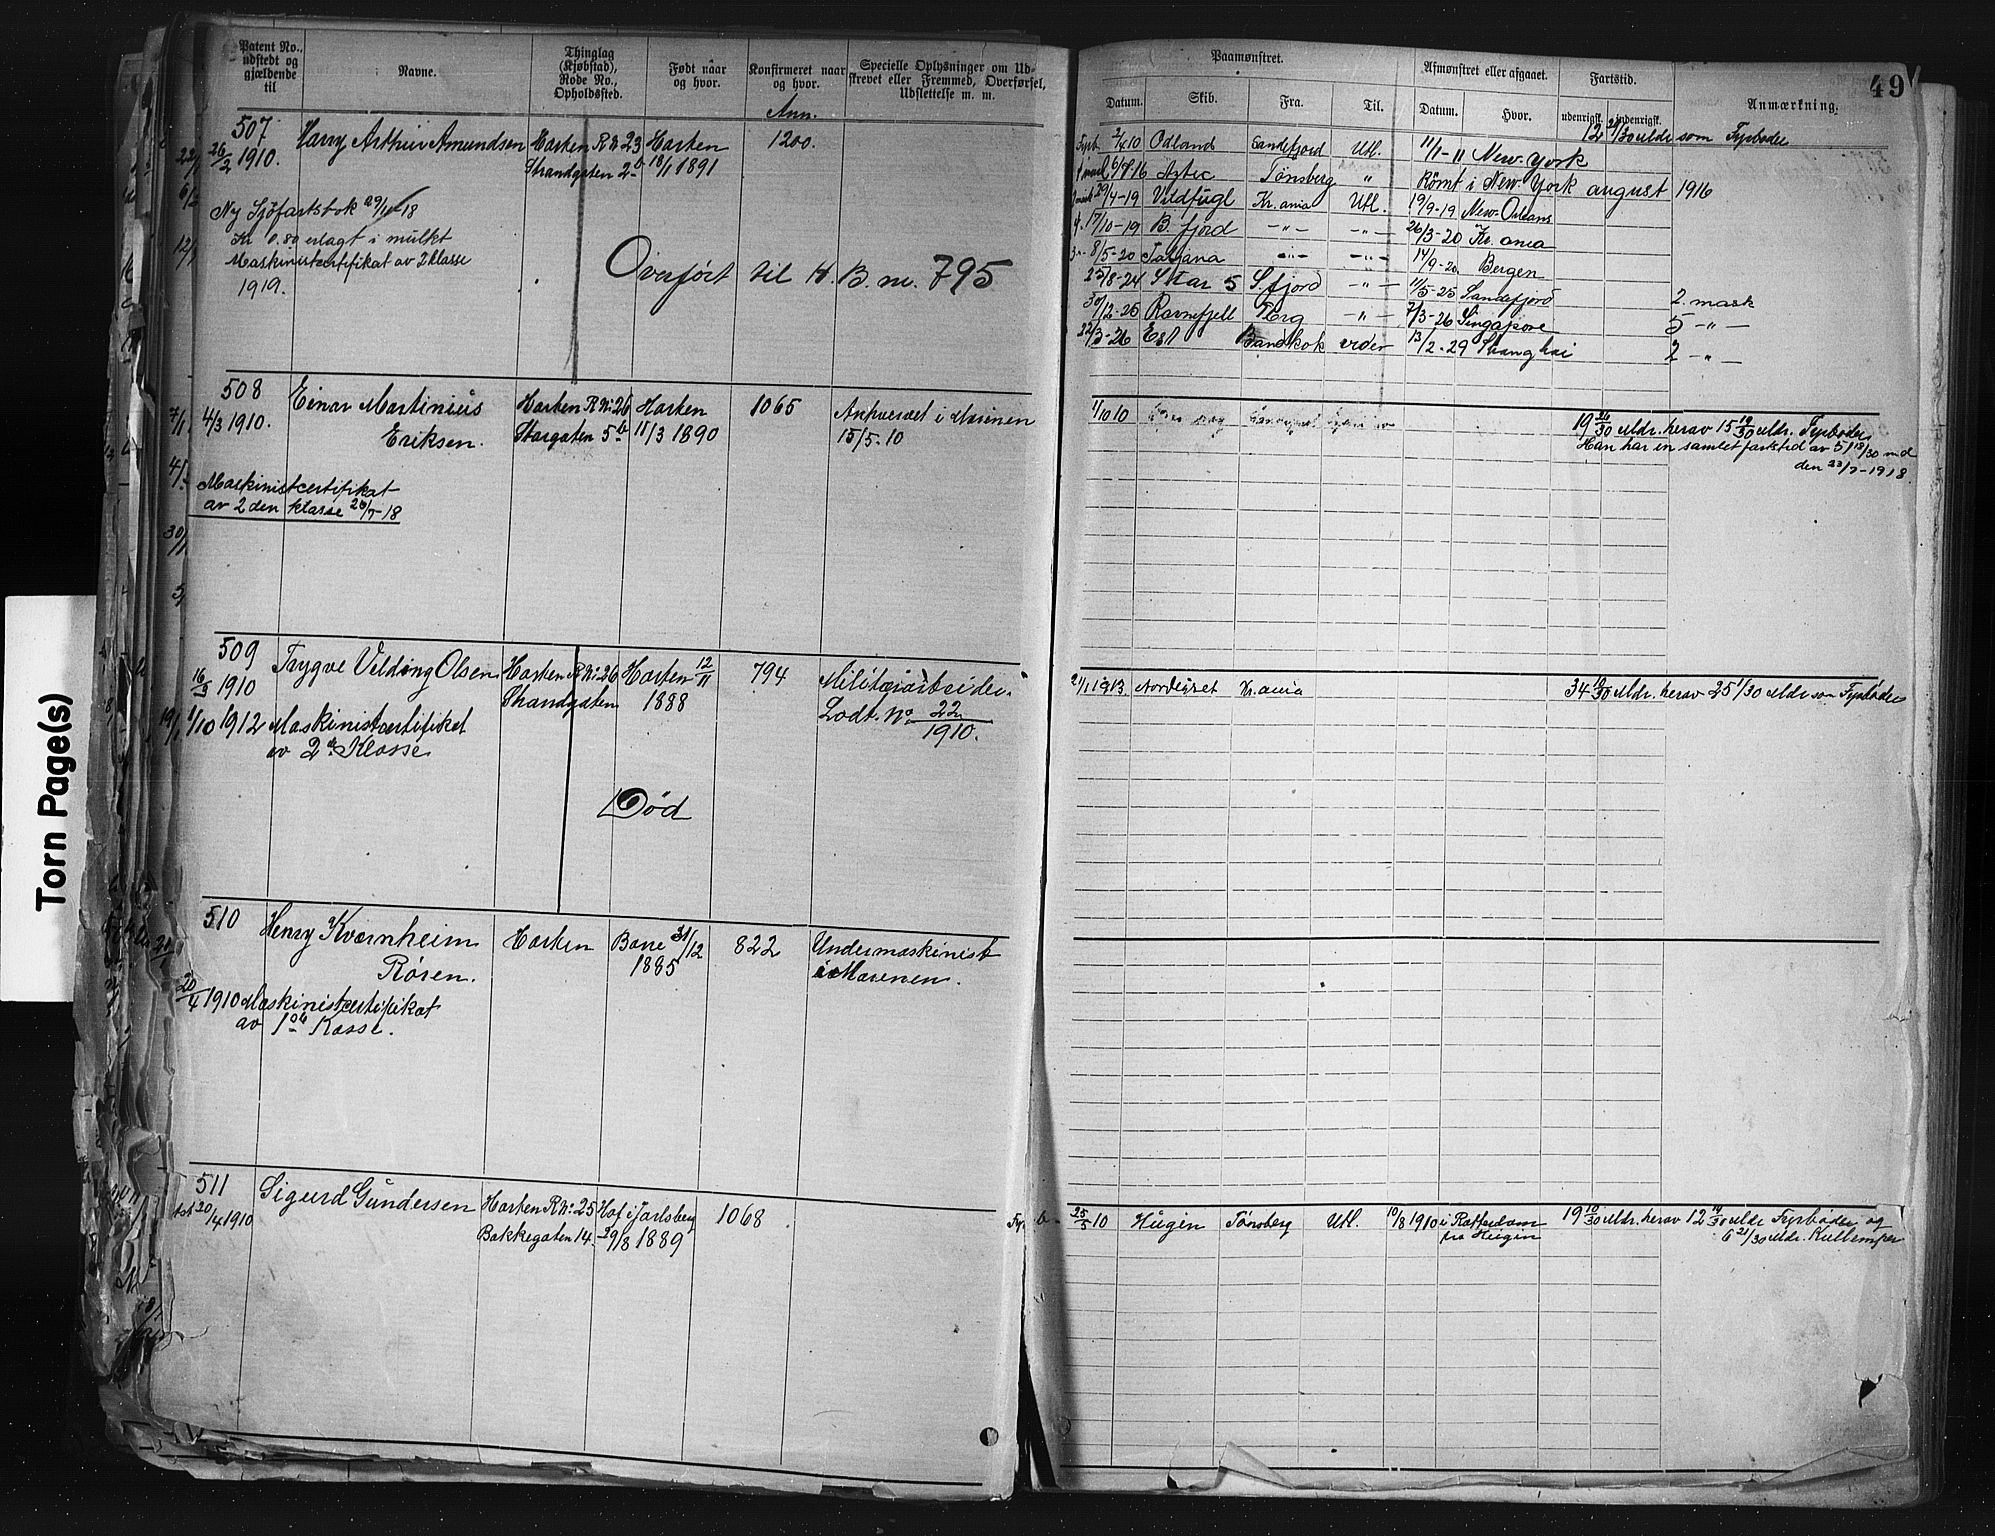 Torn Page(s)
49
Patent No., udstedt og gjældende til
Navne.
Thinglag (Kjøbstad), Rode No., Opholdssted.
Født naar og hvor.
Konfirmeret naar og hvor.
Ann.
Specielle Oplysninger om Udskrevet eller Fremmed, Overførsel, Udslettelse m. m.
Paamønstret.
Datum.
Skib.
Fra.
Til.
Afmønstret eller afgaaet.
Datum.
Hvor.
Fartstid.
udenrigsk.
indenrigsk.
Anmærkning.
507
26/2 1910.
Harry Arthur Amundsen
Horten R № 23
Strandgaten 2b
Horten
18/1 1891
1200.
Ny Sjøfartsbok 29/10-18
Kr 0.80 erlagt i mulkt
Maskinistcertifikat av 2 klasse
1919.
Overført til H. B. nr. 795
som Fyrbøder
Fyrb. 2/4 10 Odland Sandefjord Utl. 11/1-11 New-York
Astec Tønsberg " Römt i New York august 1916
29/4-19 Vildfugl Kr.ania Utl. 19/9-19 New-Orleans
17/10-19 B. fjord -"- -"- 26/3-20 Kr. ania
8/5-20 Tatjana -"- -"- 14/9-20 Bergen
25/8-24 Star 5 S.fjord -"- 11/5-25 Sandefjord 2. mask
30/12-25 Ravnefjell -"- 7/3-26 Singapore 5 -"-
22/3-26 Bangkok 13/2-29 Shanghai 2 -"-
508
4/3 1910.
Einar Martinius
Eriksen.
Horten R №: 26
Storgaten 5b
Horten
15/3 1890
1065
Ankvervet i Marinen
15/5.10
Maskinistcertifikat
av 2 den klasse 20/7-18
1/10 10
19 26/30 Mdr. herav 15 19/30 Mdr. Fyrbøder
Han har en samlet fartstid av 51 18/30 md
den 23/7-1918.
509
16/3 1910
Trygve Velding Olsen
Horten R №: 26
Strandgaten
Horten 12/11
1888
794
Militærarbeider.
Lodt. № 22/1910.
1/10 1912 Maskinistcertifikat
av 2d Klasse
Død
2/1 1913 Nordlyset Kr.ania
34 19/30 Mdr. herav 25 1/30 Mdr som Fyrbøder
510
Henry Kvarnheim
Røren.
Horten
Borre 31/12
1885
822
Undermaskinist
i Marinen.
20/4 1910 Maskinistcertifikat
av 1ste Kasse.
511
20/4 1910
Sigurd Gundersen
Horten R №: 25
Bakkegaten 14.
Hof i Jarlsberg
29/8 1889
1068
25/5 10 Hugin Tønsberg Utl. 10/8 1910 i Rotterdam
fra Hugin
19 10/30 Mdr. herav 12 19/30 Mdr Fyrbøder og
6 21/30 Mdr. Kullemper